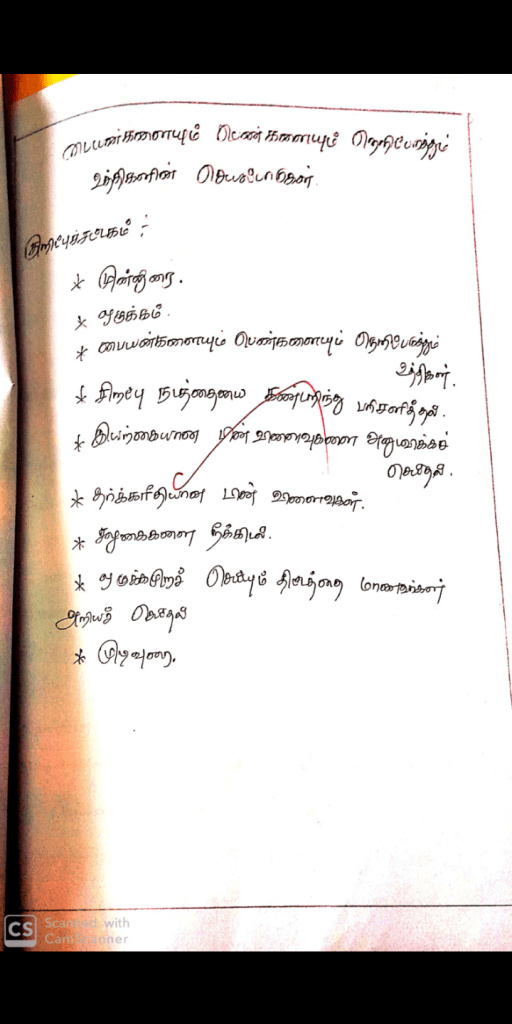 பையன்களையும் பெண்களையும் நெறிபடுத்தும்
உத்திகளின் செயல்பாடுகள்.
குறிப்புச்சட்டகம் :-
* முன்னுரை.
* ஒழுக்கம்.
* பையன்களையும் பெண்களையும் நெறிபடுத்தும்
உத்திகள்.
* சிறப்பு நடத்தையை கண்டறிந்து பரிசளித்தல்.
* இயற்கையான பின் விளைவுகளை அனுபவிக்கச்
செய்தல்.
* தர்க்கரீதியான பின் விளைவுகள்.
* சலுகைகளை நீக்கிடல்.
* ஒழுக்கமுறச் செய்யும் திட்டத்தை மாணவர்கள்
அறியச் செய்தல்
* முடிவுரை.
CS Scanned with
CamScanner